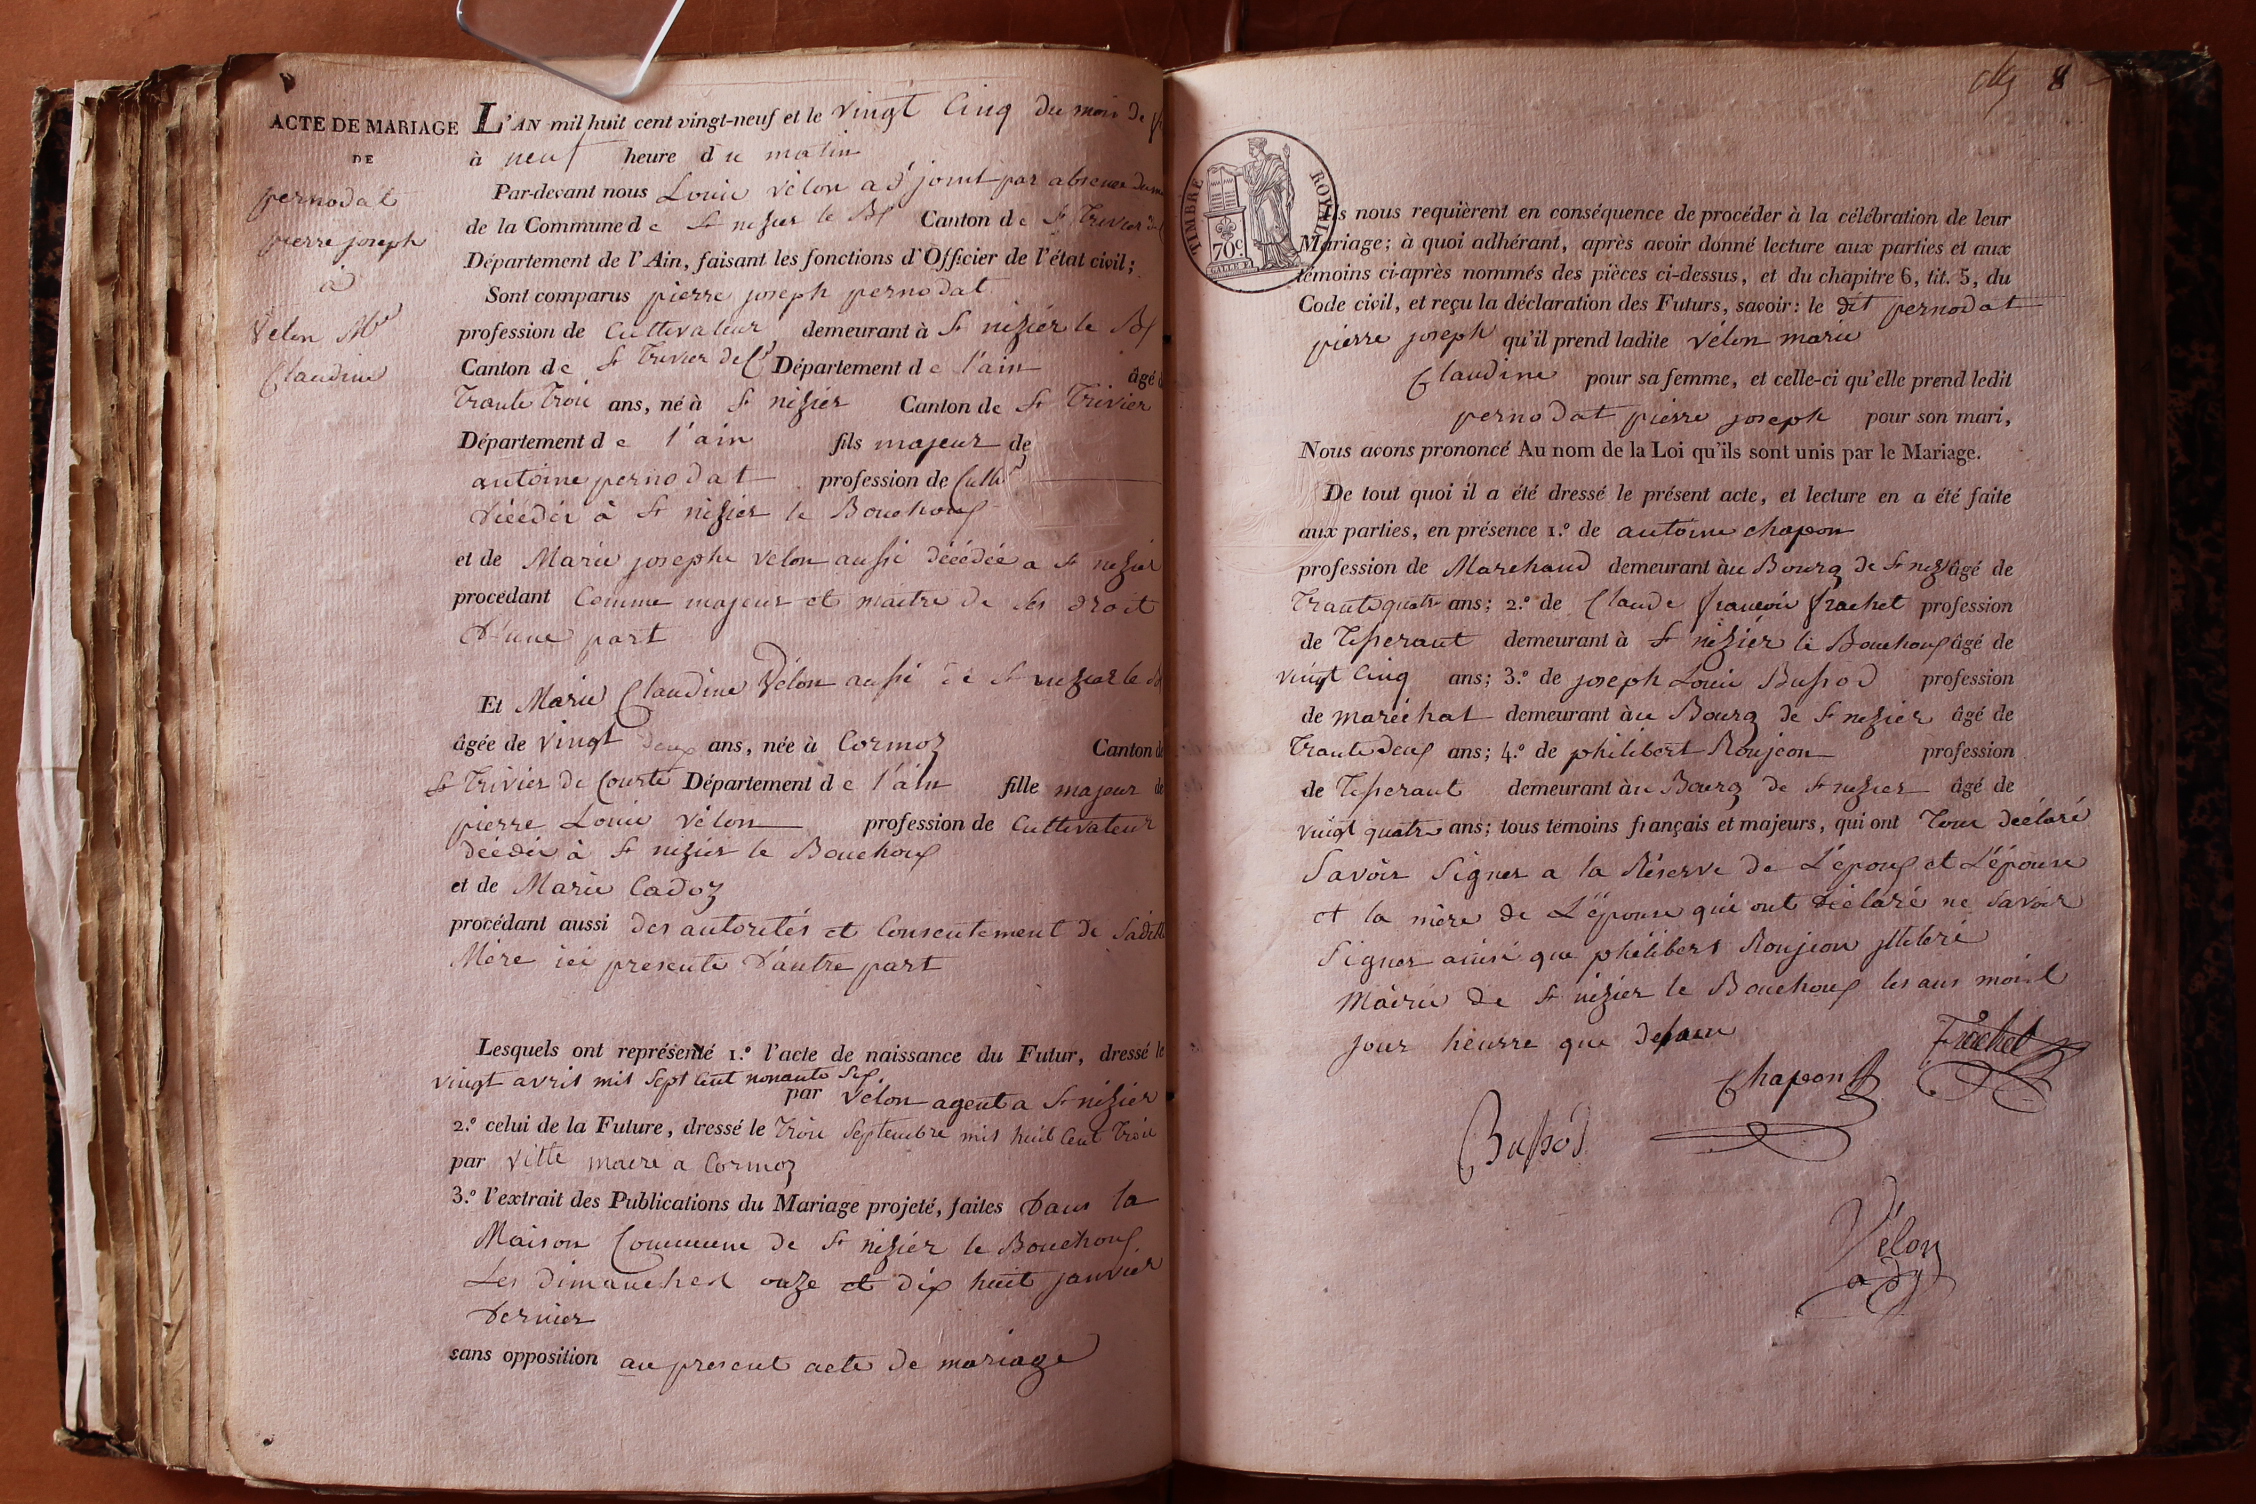 ACTE DE MARIAGE
DE
pernodat
pierre joseph
à
Velon Mie
Claudine
L'AN mil huit cent vingt-neuf et le vingt Cinq du mois de
à neuf heure du matin
Par-devant nous Louis vélon adjoint par absence du
de la Commune de St nizier le Bx Canton de St Trivier de
Département de l'Ain, faisant les fonctions d'Officier de l'état civil;
Sont comparus pierre joseph pernodat
profession de Cultivateur demeurant à St nizier le Bx
Canton de St Trivier de Ct Département de l'ain âgé
Trante Trois ans, né à St nizier Canton de St Trivier
Département de l'ain fils majeur de
antoine pernodat profession de Cultr
décédé à St nizier le Bouchoux
et de Marie josephe velon aussi décédée a St nizier
procédant Comme majeur et maitre de ses droit
D'une part
Et Marie Claudine Vélon aussi de St nizier le Bx
âgée de vingt deux ans, née à Cormoz Canton de
St Trivier de Courte Département de l'ain fille majeur de
pierre Louis vélon profession de Cultivateur
décédé à St nizier le Bouchoux
et de Marie Cadoz
procédant aussi des autorités et Consentement de Sadite
Mère ici presente D'autre part
Lesquels ont représenté 1.° l'acte de naissance du Futur, dressé le
vingt avril mil Sept Cent nonante Six
par vélon agent a St nizier
2.° celui de la Future, dressé le Trois Septembre mil huit Cent Trois
par vitte maire a Cormoz
3.° l'extrait des Publications du Mariage projeté, faites Dans la
Maison Commune de St nizier le Bouchoux
Les dimanches onze et dix huit janvier
Dernier
sans opposition au present acte de mariage
8
TIMBRE ROYAL
70c.
ls nous requièrent en conséquence de procéder à la célébration de leur
Mariage; à quoi adhérant, après avoir donné lecture aux parties et aux
témoins ci-après nommés des pièces ci-dessus, et du chapitre 6, tit. 5, du
Code civil, et reçu la déclaration des Futurs, savoir: le dit pernodat
pierre joseph qu'il prend ladite vélon marie
Claudine pour sa femme, et celle-ci qu'elle prend ledit
pernodat pierre joseph pour son mari,
Nous avons prononcé Au nom de la Loi qu'ils sont unis par le Mariage.
De tout quoi il a été dressé le présent acte, et lecture en a été faite
aux parties, en présence 1.° de antoine chapon
profession de Marchand demeurant au Bourg de St nizr âgé de
Trante quatr ans; 2.° de Claude françois frachet profession
de Tisserant demeurant à St nizier le Bouchoux âgé de
vingt Cinq ans; 3.° de joseph Louis Bussod profession
de maréchal demeurant au Bourg de St nizier âgé de
Trante deux ans; 4.° de philibert Roujeon profession
de Tisseraut demeurant au Bourg de St nizier âgé de
vingt quatre ans; tous témoins français et majeurs, qui ont Tous déclaré
Savoir Signer a la Réserve de L'époux et L'épouse
et la mère de L'épouse qui ont déclaré ne Savoir
Signer ainsi que philibert Roujeon
Mairie de St nizier le Bouchoux les ans mois &
jour heurre que dessus
Frachet
Chapon
Bussod
Vélon
adj